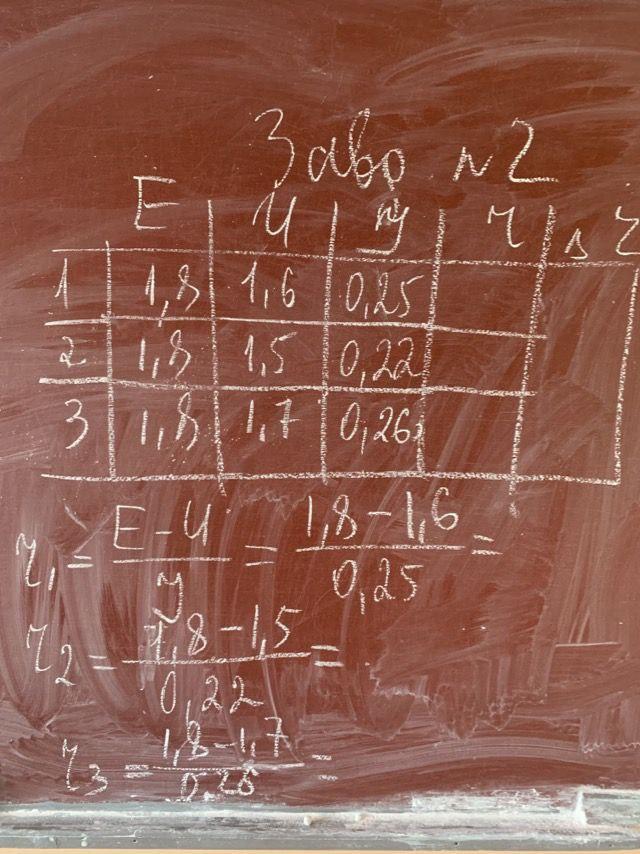 Завд №2
E U У r Δ r
1 1,8 1,6 0,25
2 1,8 1,5 0,22
3 1,8 1,7 0,26
r₁ = E-U/У = 1,8-1,6/0,25 =
r₂ = 1,8-1,5/0,22 =
r₃ = 1,8-1,7/0,26 =